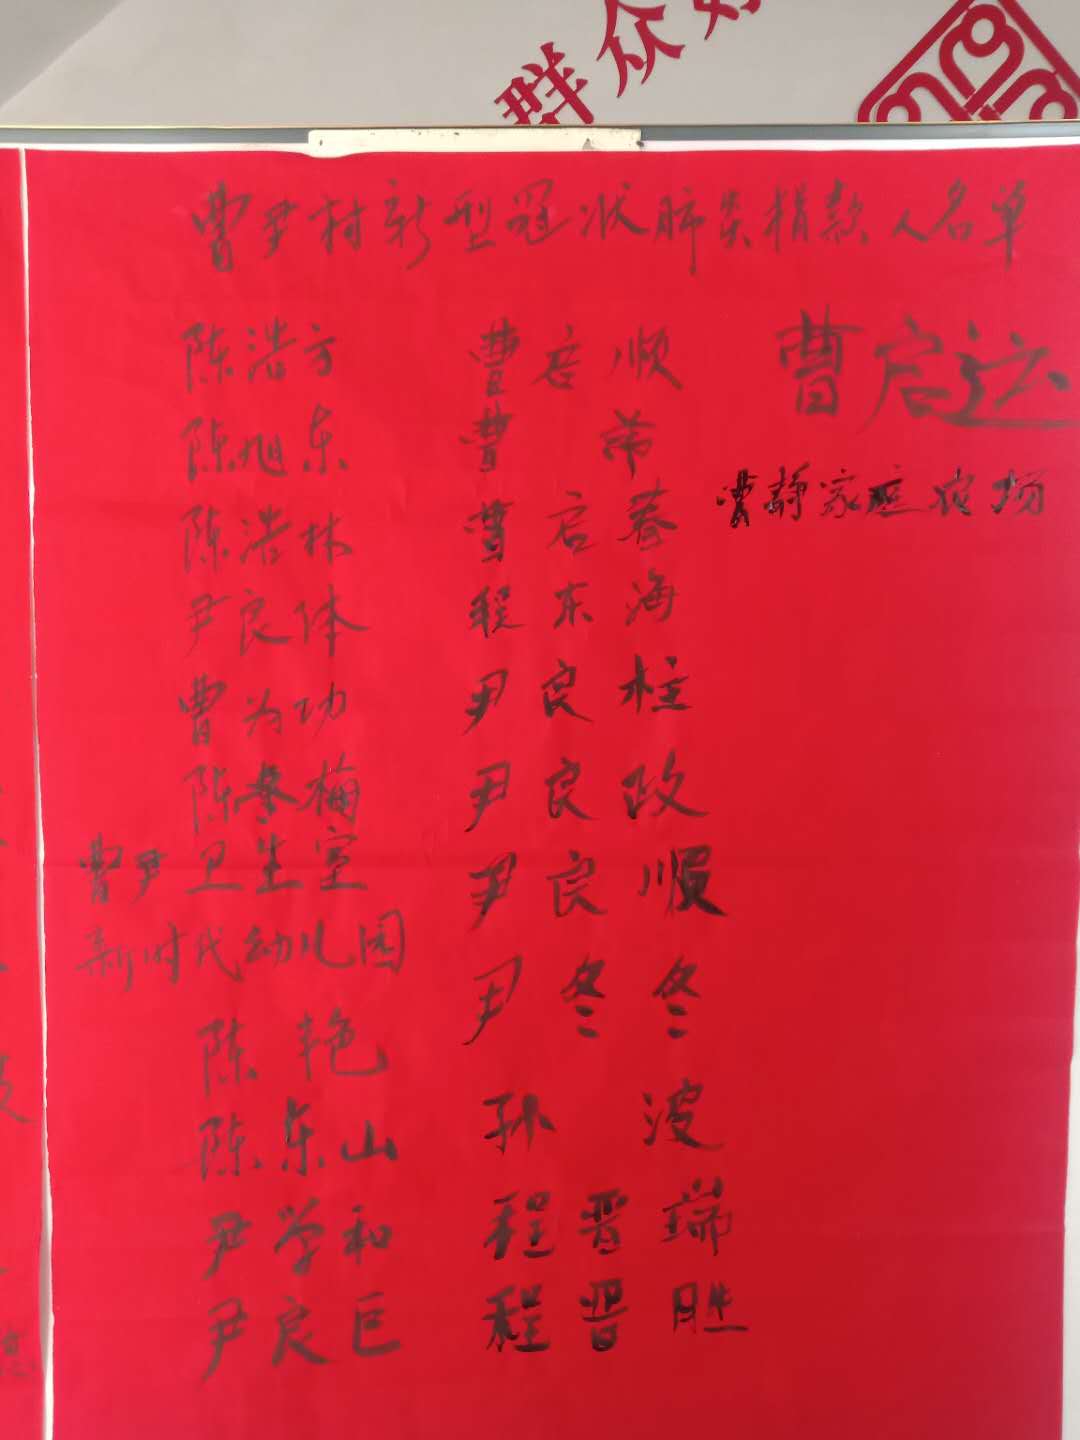 群众
曹尹村新型冠状肺炎捐款人名单
陈浩方
陈旭东
陈浩林
尹良体
曹为功
陈冬梅
曹尹卫生室
新时代幼儿园
陈艳
陈东山
尹学和
尹良巨
曹启顺
曹芾
曹启春
程东海
尹良柱
尹良政
尹良顺
尹冬冬
孙波
程晋瑞
程晋胜
曹启运
曹静家庭农场